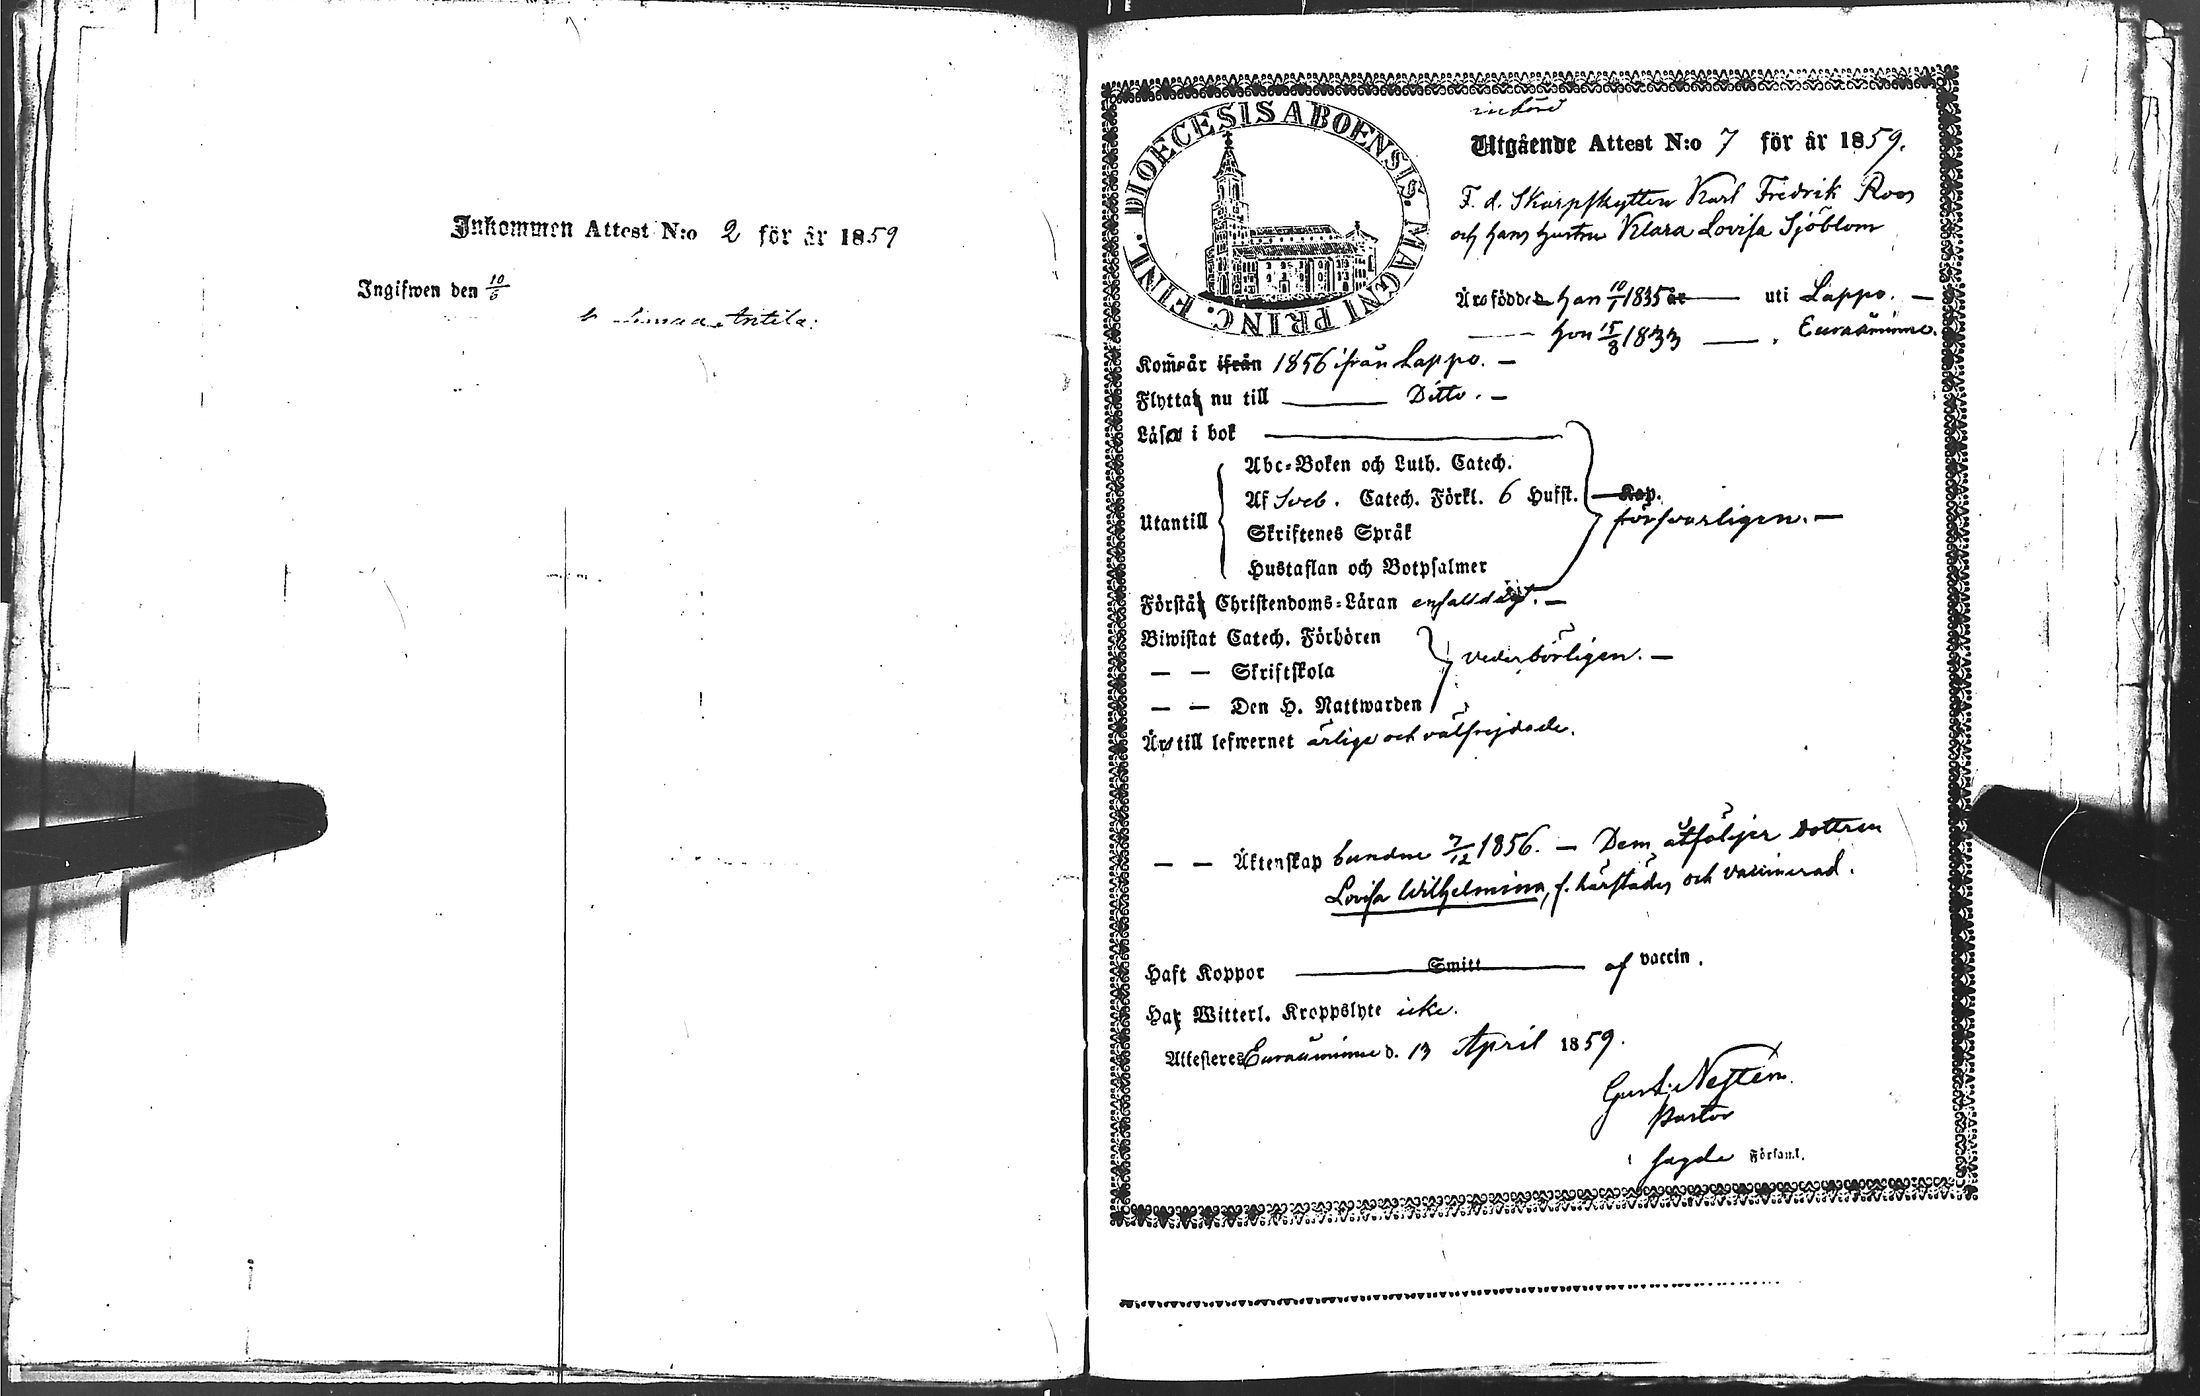 Inkommen Attest N:o 2 för år 1859
Ingifwen den 10/6
Antila.
DIOECESIS ABOENSIS. MAGNI PRINC. FINL.
Utgående Attest N:o 7 för år 1859.
F. d. Skarpskytten Karl Fredrik Roos
och hans hustru Klara Lovisa Sjöblom
Äro födde han 10/1 1835 år uti Lappo. —
— hon 15/8 1833 — . Euraåminne.
Kom år ifrån 1856 ifrån Lappo. —
Flytta nu till — Ditto. —
Läsa i bok
Abc-Boken och Luth. Catech.
Af Sveb. Catech. Förkl. 6 Hufst. Kap.
Utantill försvarligen. —
Skriftenes Språk
Hustaflan och Botpsalmer
Förstå Christendoms-Läran enfaldigt. —
Biwistat Catech. Förhören
— — Skriftskola vederbörligen. —
— — Den H. Nattwarden
Äro till lefwernet ärlige och välfrejdade.
— — Äktenskap bundne 7/12 1856. — Dem åtföljer dottren
Lovisa Wilhelmina, f. härstädes och vaccinerad.
Haft Koppor Smitt af vaccin.
Ha Witterl. Kroppslyte icke.
Attesteres Euraåminne d. 13 April 1859.
Gust. Nestén
Pastor
i sagde Församl.